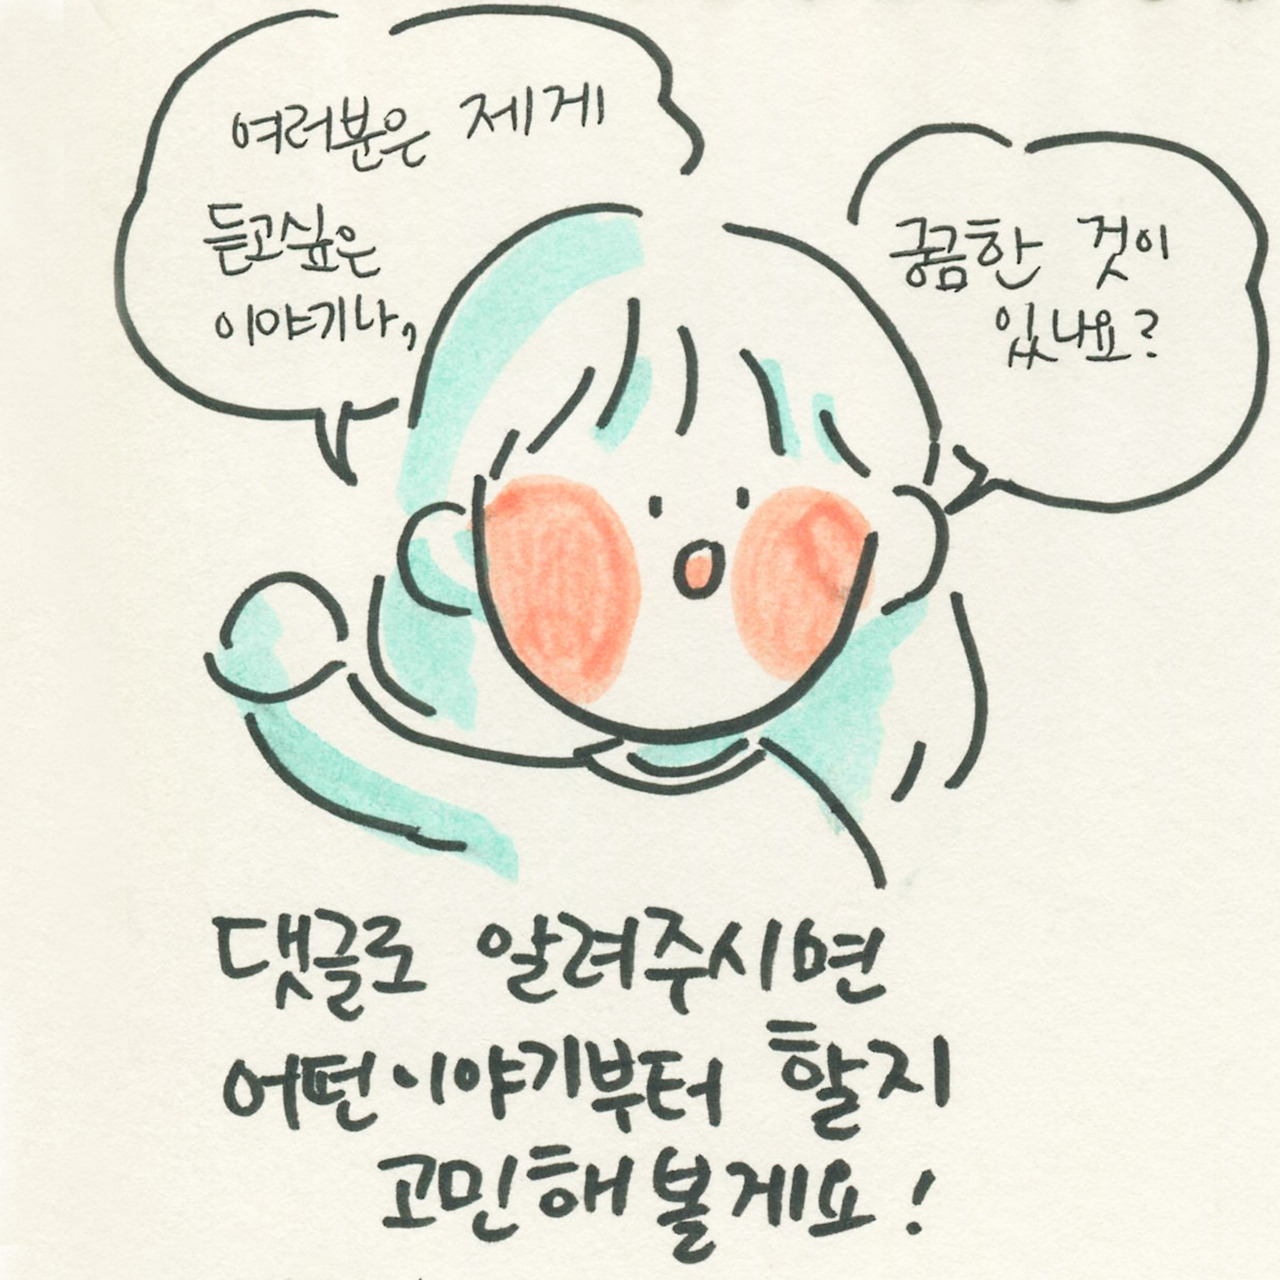 여러분은 제게
듣고싶은
이야기나,
궁금한 것이
있나요?
댓글로 알려주시면
어떤이야기부터 할지
고민해볼게요!